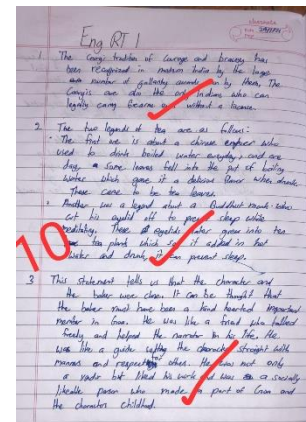 Eng RT 1
1. The Coorgi tradition of courage and bravery has
been recognized in modern India by the large
number of gallantry awards won by them. The
Coorgis are also the only Indians who can
legally carry firearms without a licence.
2. The two legends of tea are as follows:
The first one is about a chinese emperor who
used to drink boiled water everyday, and one
day, a some leaves fell into the pot of boiling
water which gave it a delicious flavor when drank.
These came to be tea leaves.
Another was a legend about a Buddhist monk who
cut his eyelid off to prevent sleep while
meditating. These eyelids later grew into ten
tea plants which if added in hot
water and drunk, it can prevent sleep.
10
3 This statement tells us that the character and
the baker were close. It can be thought that
the baker must have been a kind hearted important
member in Goa. He was like a friend who talked
freely and helped the narrator in his life. He
was like a guide the character straight with
manners and respect others. He was not only
a vendor but liked his work and was a socially
likeable person who made part of Goa and
the character childhood.